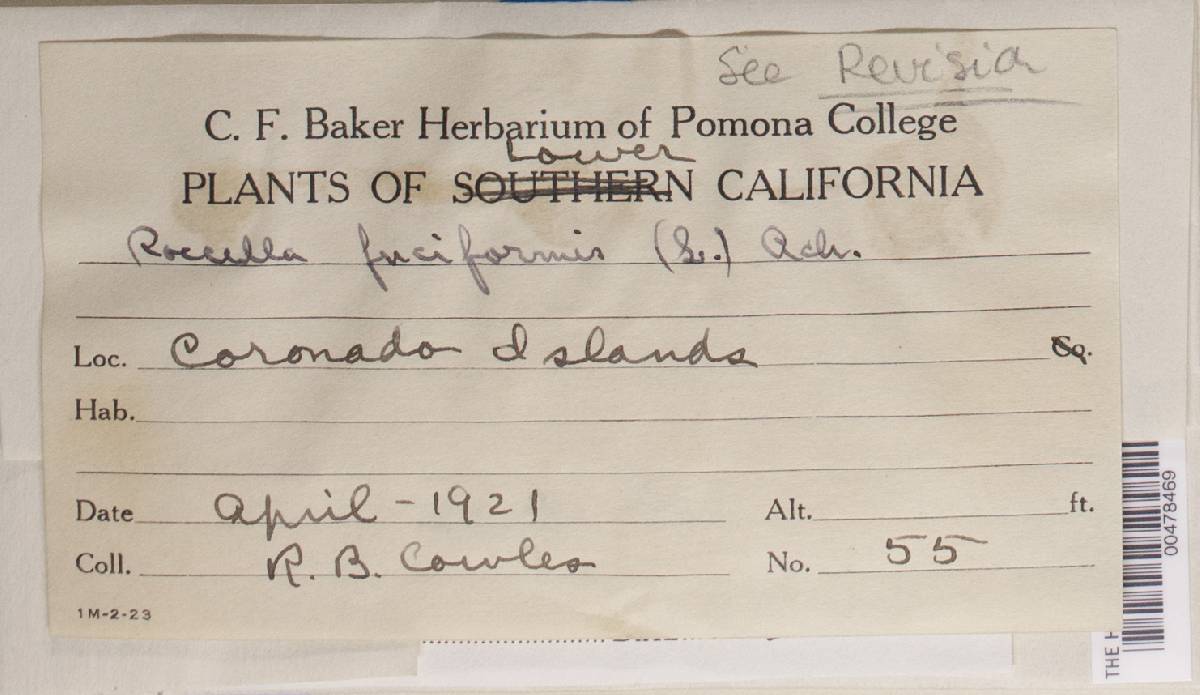 See Revision
C. F. Baker Herbarium of Pomona College
Lower
PLANTS OF SOUTHERN CALIFORNIA
Roccella fuciformis (L.) Ach.
Loc. Coronado Islands Co.
Hab.
Date April - 1921 Alt. ft.
Coll. R. B. Cowles No. 55
1M-2-23
00478469
THE